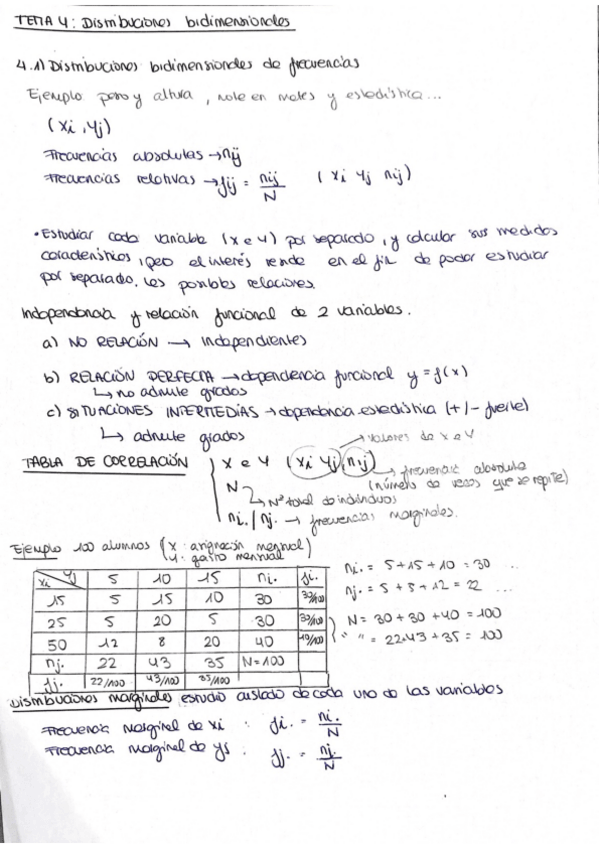 TEMA 4: Distribuciones bidimensionales
4.1) Distribuciones bidimensionales de frecuencias
Ejemplo peso y altura, nota en mates y estadística...
(xi, yj)
Frecuencias absolutas → nij
Frecuencias relativas → fij = nij/N (xi yj nij)
• Estudiar cada variable (x e y) por separado, y calcular sus medidas
características, pero el interés reside en el fin de poder estudiar
por separado, las posibles relaciones.
Independencia y relación funcional de 2 variables.
a) NO RELACIÓN → independientes
b) RELACIÓN PERFECTA → dependencia funcional y = f(x)
↳ no admite grados
c) SITUACIONES INTERMEDIAS → dependencia estadística (+/- fuerte)
↳ admite grados
→ valores de x e y
TABLA DE CORRELACIÓN { x e y (xi yj, nij) → frecuencia absoluta
(número de veces que se repite)
N ↳ Nº total de individuos
ni. / n.j → frecuencias marginales.
Ejemplo 100 alumnos (x: asignación mensual)
y: gasto mensual
xi yj 5 10 15 ni. fi.
15 5 15 10 30 30/100
25 5 20 5 30 30/100
50 12 8 20 40 40/100
nj. 22 43 35 N=100
fj. 22/100 43/100 35/100
ni. = 5+15+10 = 30 ...
nj. = 5+5+12 = 22 ...
N = 30+30+40 = 100
" " = 22+43+35 = 100
Distribuciones marginales estudio aislado de cada uno de las variables
Frecuencia marginal de xi : fi. = ni./N
Frecuencia marginal de yj : fj. = nj./N